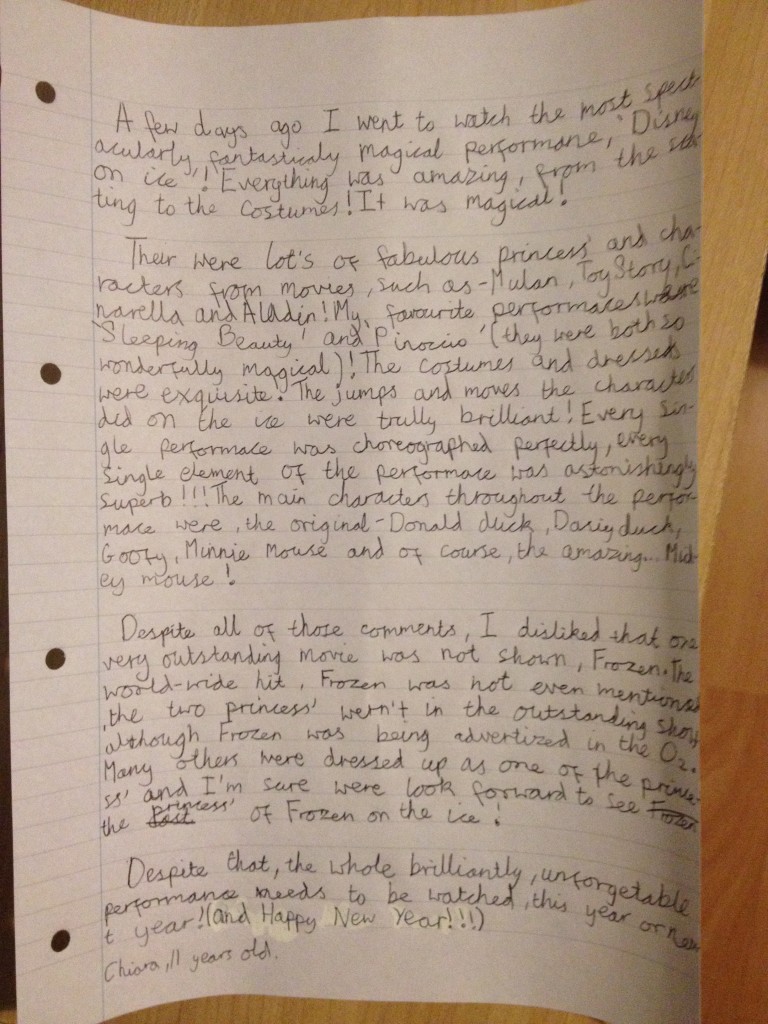 A few days ago I went to watch the most spect-
acularly, fantasticaly magical performane, 'Disney
on ice'! Everything was amazing, from the star
ting to the costumes! It was magical!
Their were lot's of fabulous princess' and cha-
racters from movies, such as - Mulan, Toy Story, Ci-
narella and Aladin! My favourite performaces were
'Sleeping Beauty' and 'Pinoccio' (they were both so
wonderfully magical)! The costumes and dresses
were exquisite. The jumps and moves the characters
did on the ice were trully brilliant! Every sin-
gle performace was choreographed perfectly, every
single element of the performace was astonishingly
superb!!! The main characters throughout the perfor-
mace were, the original - Donald duck, Dasiy duck,
Goofy, Minnie Mouse and of course, the amazing... Mick-
ey mouse!
Despite all of those comments, I disliked that one
very outstanding movie was not shown, Frozen. The
world-wide hit, Frozen was not even mentioned
, the two princess' wern't in the outstanding show
although Frozen was being advertized in the O2.
Many others were dressed up as one of the prince-
ss' and I'm sure were look forward to see Frozen
the princess' of Frozen on the ice!
Despite that, the whole brilliantly, unforgetable
performance needs to be watched, this year or nex
t year! (and Happy New Year!!!)
Chiara, 11 years old.